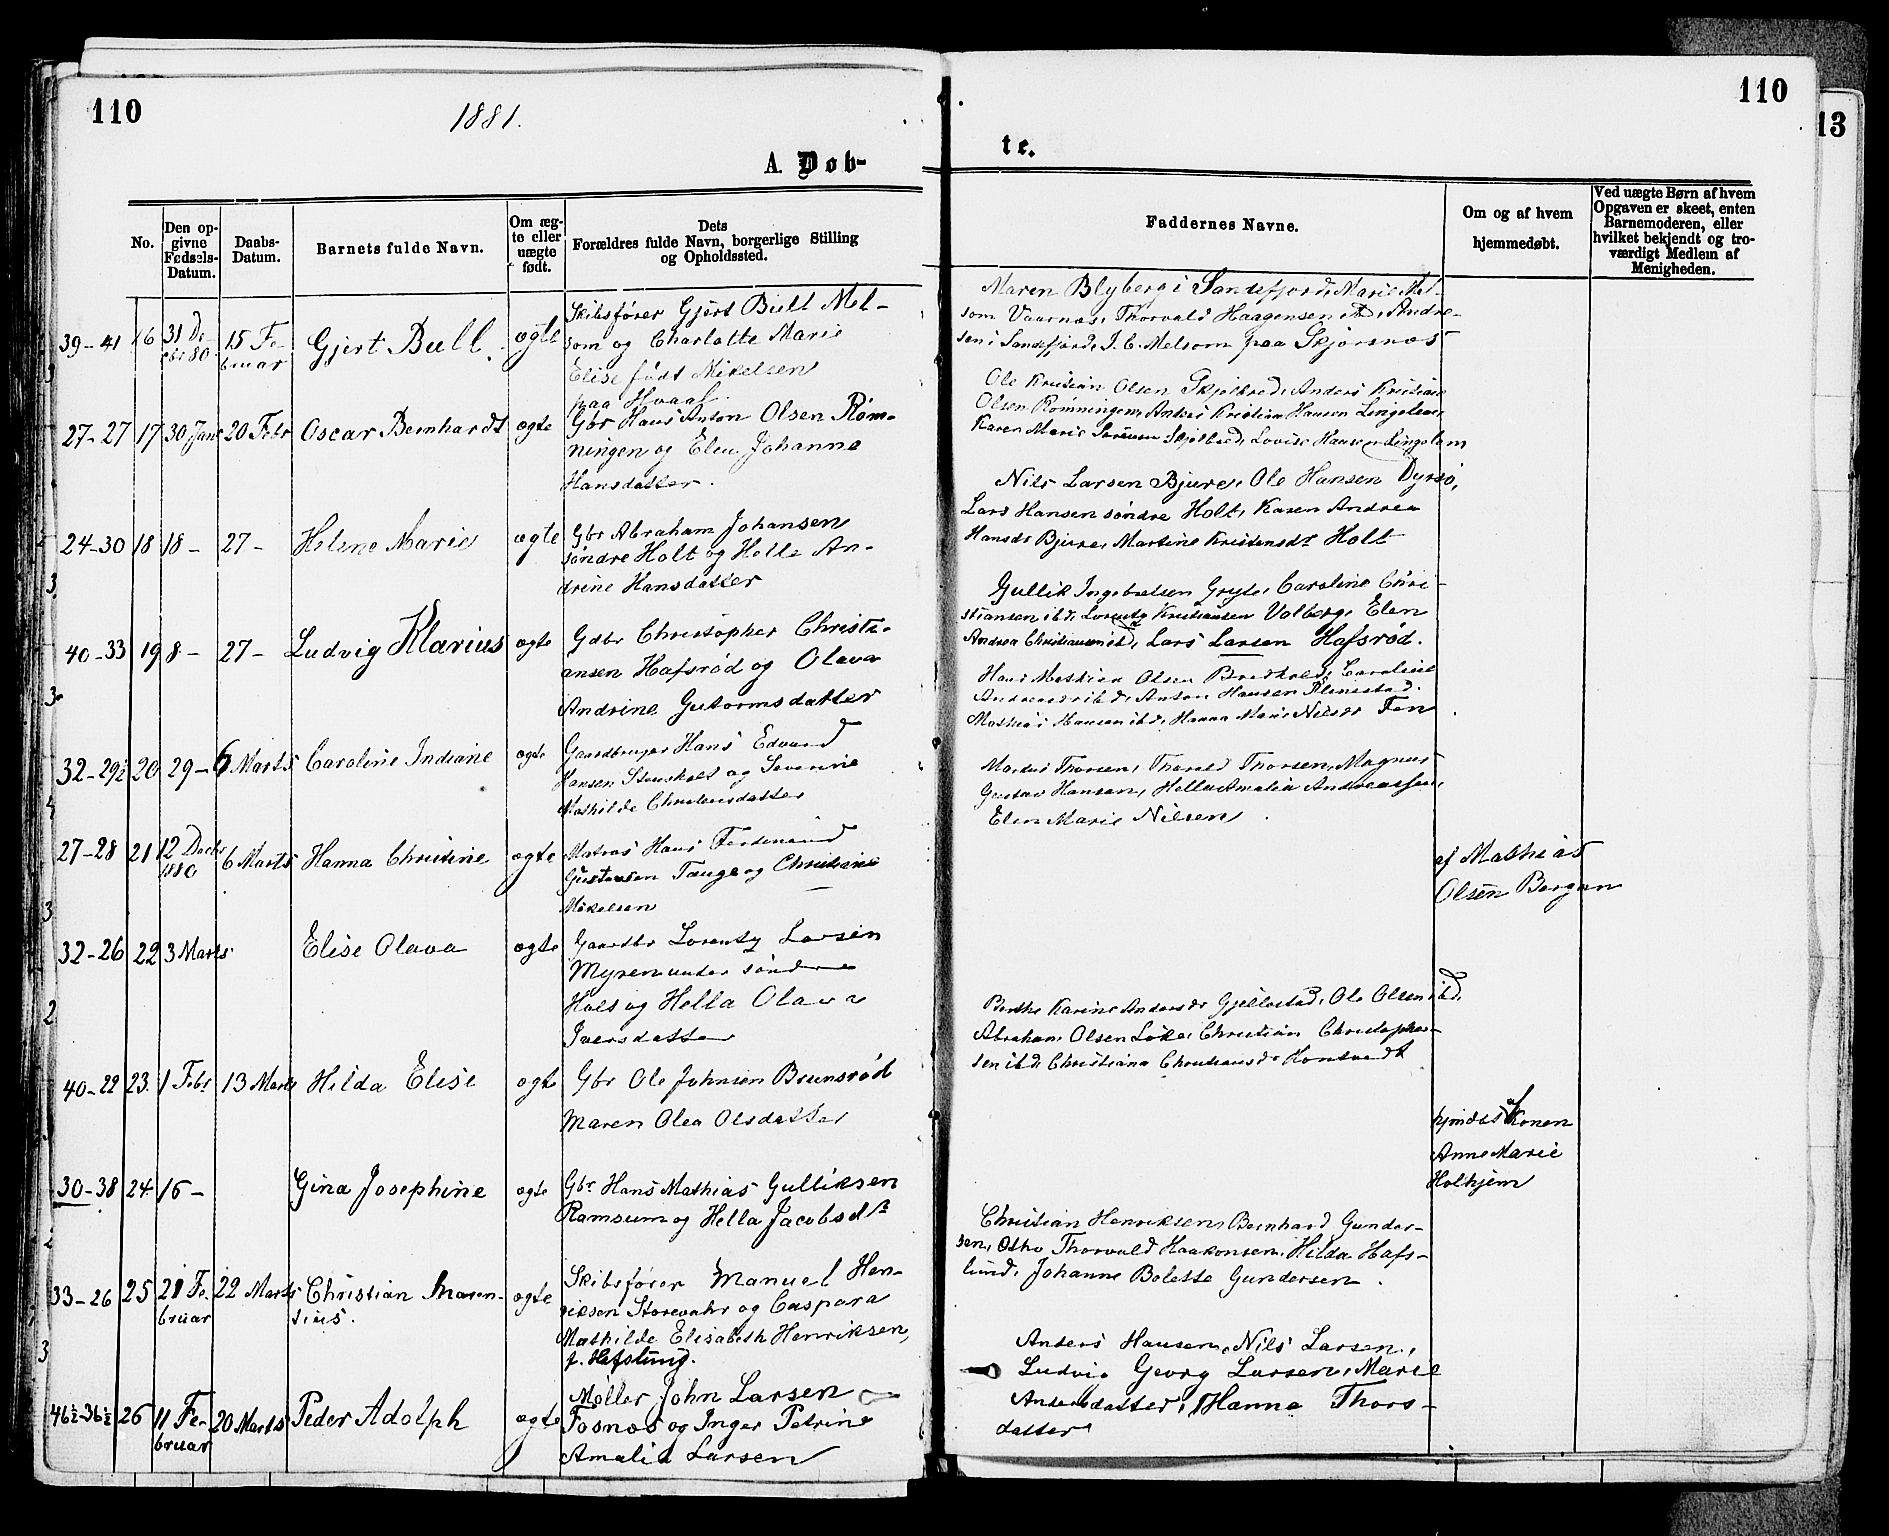 110
1881.
A. Døb-
No.
Den op-
givne
Fødsels-
Datum.
Daabs-
Datum.
Barnets fulde Navn.
Om æg-
te eller
uægte
født.
Dets
Forældres fulde Navn, borgerlige Stilling
og Opholdssted.
39-41 16 31 De- 15 Fe- Gjert Bull ægte Skibsfører Gjert Bull Mel-
cbr 80 bruar som og Charlotte Marie
Elise født Mikelsen
paa Hvaal.
27-27 17 30 Jan 20 Febr Oscar Bernhardt ægte Gbr Hans Anton Olsen Røm-
ningen og Elen Johanne
Hansdatter.
24-30 18 18 - 27 - Helene Marie ægte Gbr Abraham Johansen
søndre Holt og Helle An-
drine Hansdatter
40-33 19 8 - 27 - Ludvig Klarius ægte Gdbr Christopher Christi-
ansen Hafsrød og Olava
Andrine Guttormsdatter
32-29½ 20 29 - 6 Marts Caroline Indiane ægte Gaardbruger Hans Edvard
Hansen Stensholt og Severine
Mathilde Christensdatter
27-28 21 12 Decbr 6 Marts Hanna Christine ægte Matros Hans Ferdinand
1880 Gustavsen Tauge og Christine
Mikelsen
32-26 22 3 Marts Elise Olava ægte Gaardbr Lorentz Larsen
Myren under søndre
Holt og Hella Olava
Iversdatter
40-22 23. 1 Febr 13 Marts Hilda Elise ægte Gbr Ole Johnsen Brunsrød
Maren Olea Olsdatter
30-38 24 16 - Gina Josephine ægte Gbr Hans Mathias Gulliksen
Ramsum og Hella Jacobsdtr
33-26 25 21 Fe- 22 Marts Christian Maren- ægte Skibsfører Manuel Hen-
bruar tius. riksen Storevahr og Caspara
Mathilde Elisabeth Henriksen,
f. Hafslund.
46½-36½ 26 11 Fe- 20 Marts Peder Adolph ægte Møller John Larsen
bruar Fosnæs og Inger Petrine
Amalia Larsen
110
13
te.
Faddernes Navne.
Om og af hvem
hjemmedøbt.
Ved uægte Børn af hvem
Opgaven er skeet, enten
Barnemoderen, eller
hvilket bekjendt og tro-
værdigt Medlem af
Menigheden.
Maren Blyberg i Sandefjord, Marie Mel-
som Vaarnæs, Thorvald Haagensen Andre-
sen i Sandefjord, J. C. Melsom paa Skjørsnæs
Ole Kristian Olsen Skjelbred, Anders Kristian
Olsen Rømningen, Anders Kristian Hansen Lingelem,
Karen Marie Sørensen Skjelbred, Lovise Hansen Lingelem
Nils Larsen Bjure, Ole Hansen Dyrsø,
Lars Hansen søndre Holt, Karen Andrea
Hansdr Bjure, Martine Kristensdr Holt
Gullik Ingebretsen Gryte, Caroline Chri-
stiansen ibd, Lorentz Kristiansen Valberg, Elen
Andrea Christiansen ibd, Lars Larsen Hafsrød.
Hans Mathias Olsen Bredholt, Caroline
Andreasdr ibd, Anton Hansen Klinestad.
Mathias Hansen ibd, Hanna Marie Nilsdr Fen
Martin Thorsen, Thorvald Thorsen, Magnus
Gustav Hansen, Hella Amalia Andreassen,
Elen Marie Nilsen.
af Mathias
Olsen Bergan
Berthe Karine Andersdr Gjellestad, Ole Olsen ibd,
Abraham Olsen Løke, Christian Christopher-
sen ibd Christiana Christiansdr
af
Konen
Anne Marie
Holhjem
Christian Henriksen, Bernhard Gunder-
sen, Otho Thorvald Haakonsen, Hilda Hafs-
lund, Johanne Bolette Gundersen.
Anders Hansen, Nils Larsen,
Ludvig Georg Larsen, Marie
Andersdatter, Hanne Thors-
datter